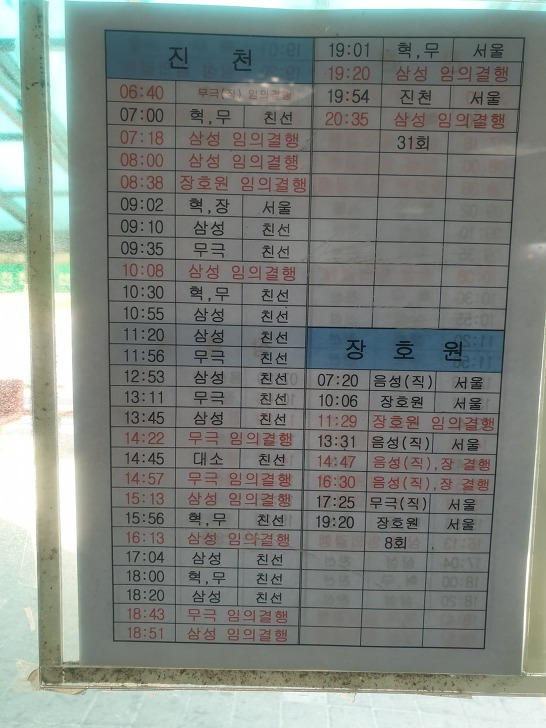 진 천
06:40 무극(직) 임의결행
07:00 혁,무 친선
07:18 삼성 임의결행
08:00 삼성 임의결행
08:38 장호원 임의결행
09:02 혁,장 서울
09:10 삼성 친선
09:35 무극 친선
10:08 삼성 임의결행
10:30 혁,무 친선
10:55 삼성 친선
11:20 삼성 친선
11:56 무극 친선
12:53 삼성 친선
13:11 무극 친선
13:45 삼성 친선
14:22 무극 임의결행
14:45 대소 친선
14:57 무극 임의결행
15:13 삼성 임의결행
15:56 혁,무 친선
16:13 삼성 임의결행
17:04 삼성 친선
18:00 혁,무 친선
18:20 삼성 친선
18:43 무극 임의결행
18:51 삼성 임의결행
19:01 혁,무 서울
19:20 삼성 임의결행
19:54 진천 서울
20:35 삼성 임의결행
31회
장 호 원
07:20 음성(직) 서울
10:06 장호원 서울
11:29 장호원 임의결행
13:31 음성(직) 서울
14:47 음성(직),장 결행
16:30 음성(직),장 결행
17:25 무극(직) 서울
19:20 장호원 서울
8회